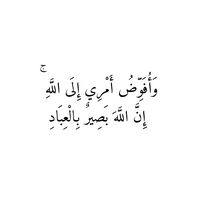 وَأُفَوِّضُ أَمْرِي إِلَى اللَّهِ ۚ
إِنَّ اللَّهَ بَصِيرٌ بِالْعِبَادِ